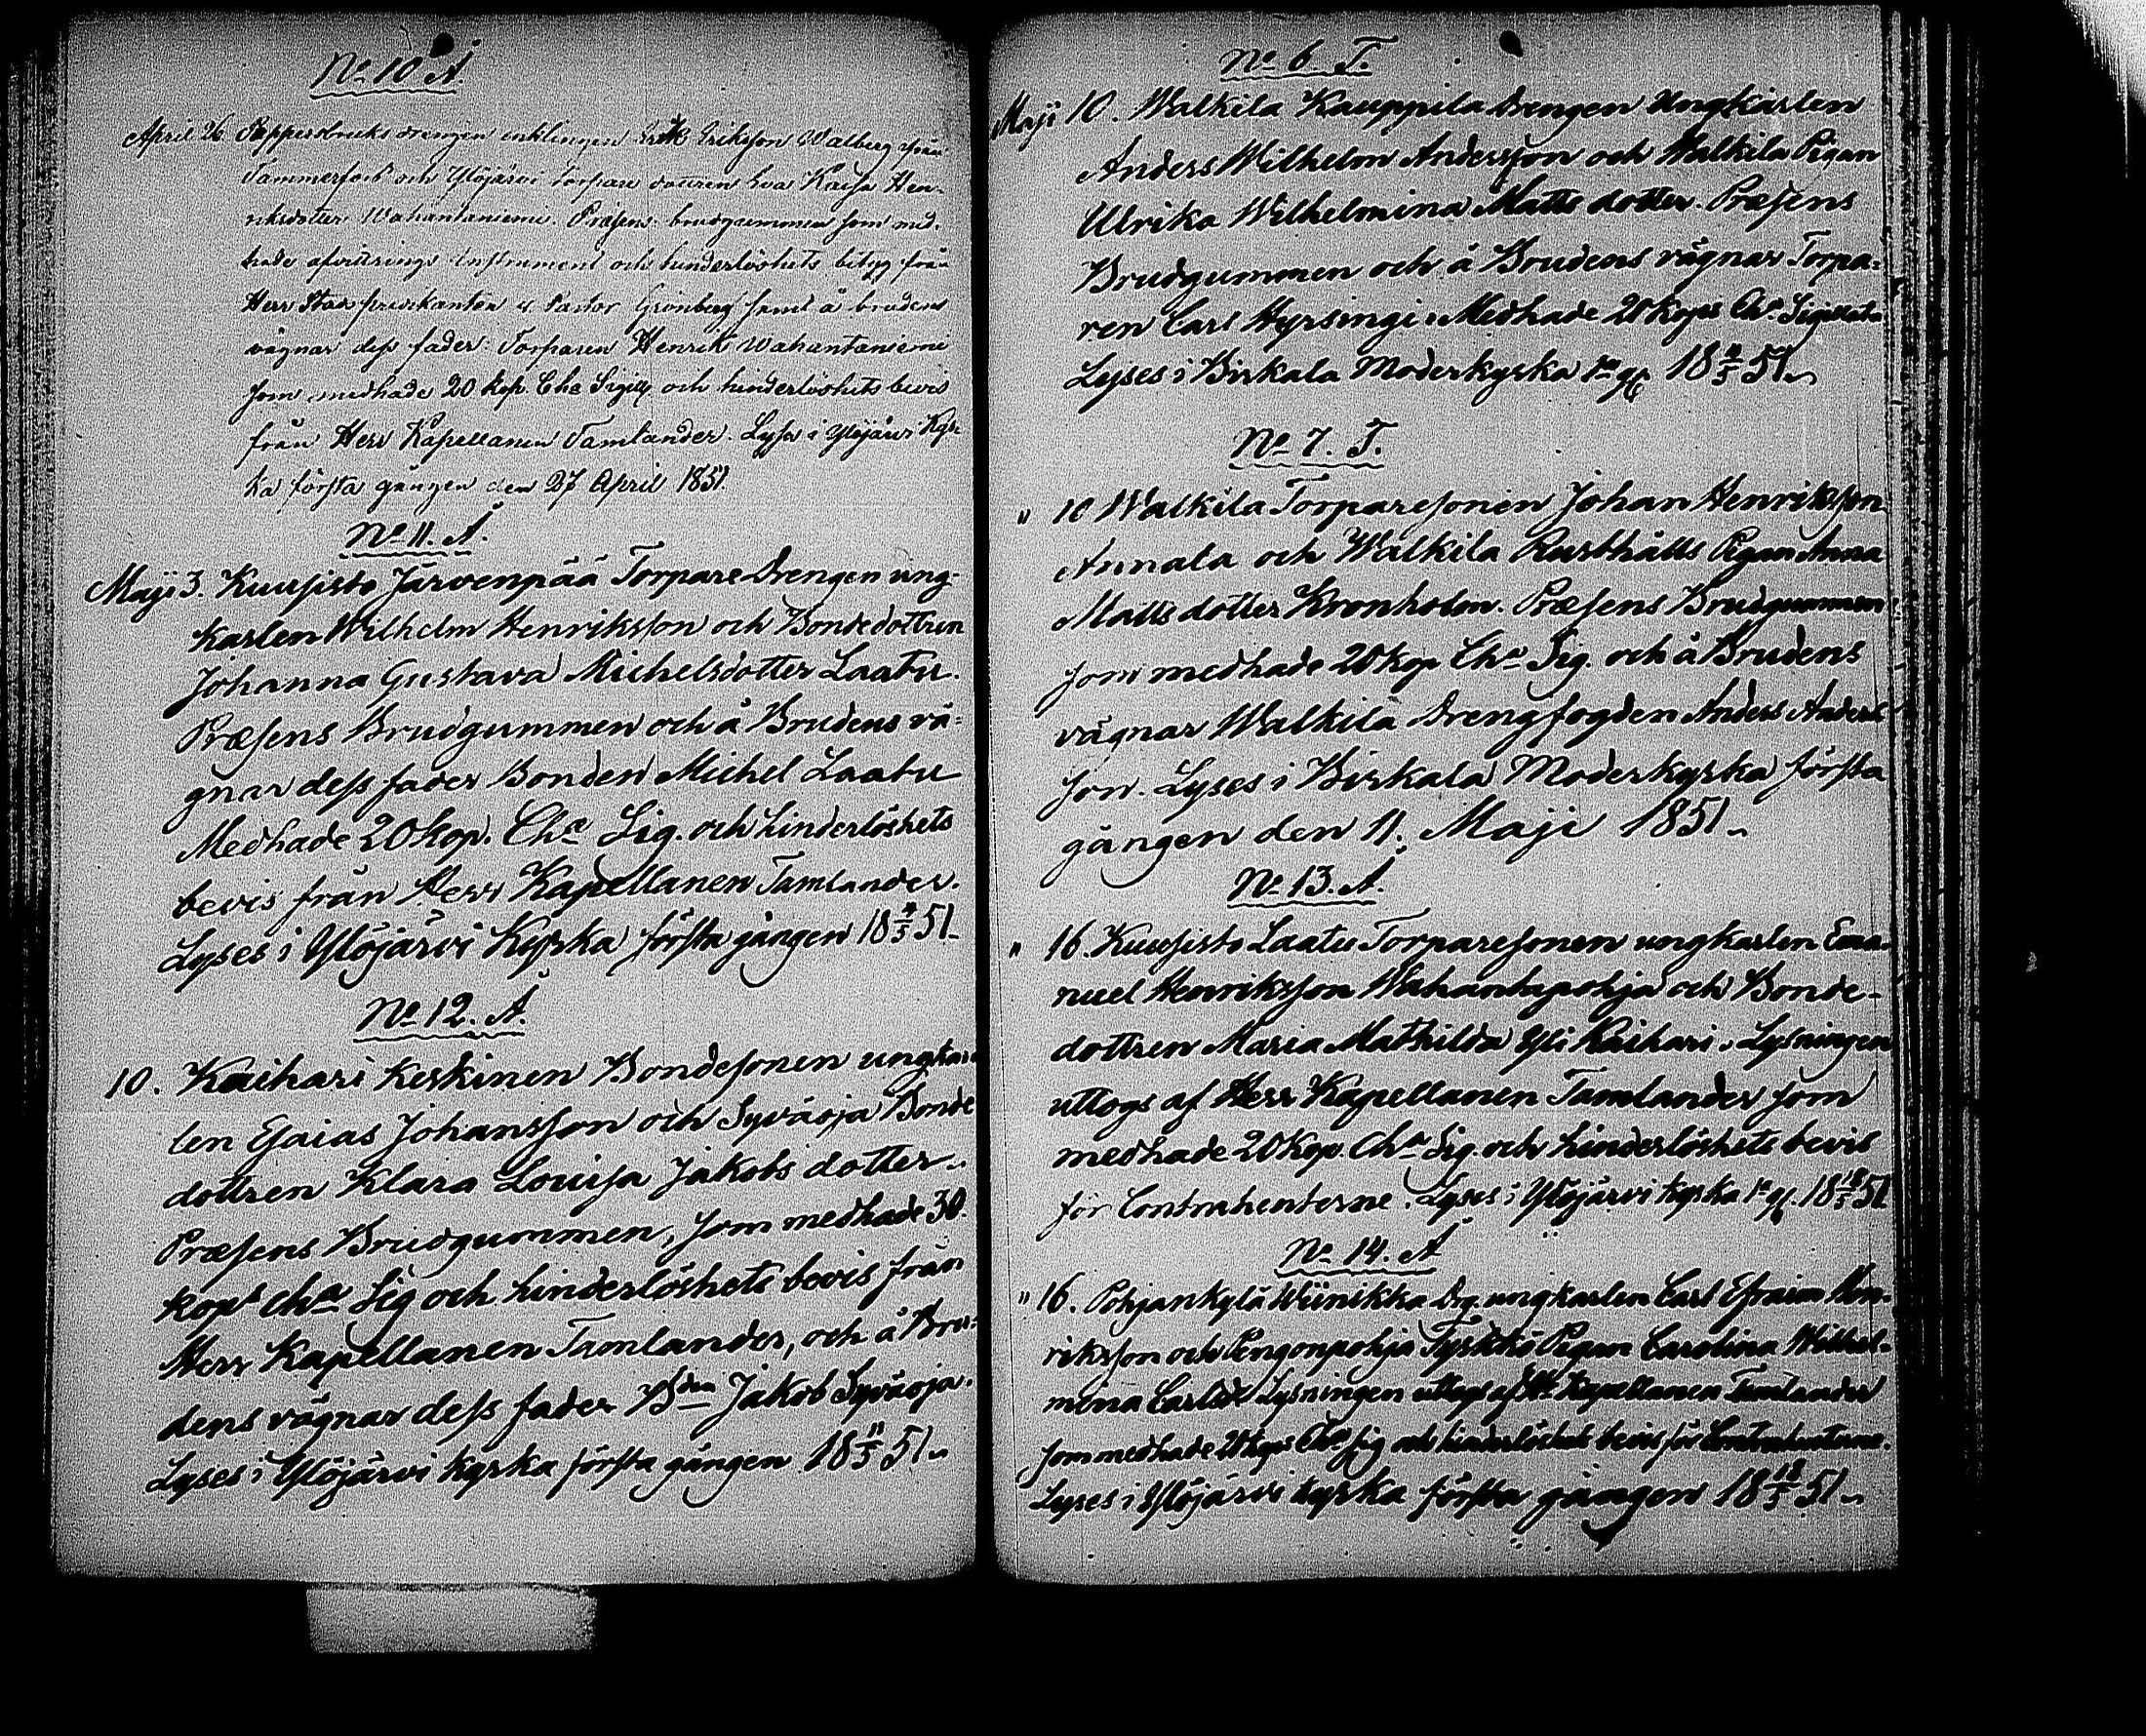 No 10 A.
April 26 Pappersbruks drengen enklingen Erik Eriksson Walberg från
Tammerfors och Ylöjärvi Torpare dottren Eva Kaisa Hen-
riksdotter Wahantaniemi. Præsens brudgummen som med-
hade afvittrings Instrument och hinderlöshets betyg från
Herr Stadspredikanten & Pastor Grönberg samt å brudens
vägnar dess fader Torparen Henrik Wahantaniemi
som medhade 20 kop. Cha Sigill. och hinderlöshets bevis
från Herr Kapellanen Tamlander. Lyses i Ylöjärvi Kyr-
ka första gången den 27 April 1851.
No 11. A.
Maji 3. Kuusisto Järvenpää Torpare Drengen ung-
karlen Wilhelm Henriksson och Bondedottren
Johanna Gustava Michelsdotter Laatu.
Præsens Brudgummen och å Brudens vä-
gnar dess fader Bonden Michel Laatu
Medhade 20 kop. Cha Sig. och hinderlöshets
bevis från Herr Kapellanen Tamlander.
Lyses i Ylöjärvi Kyrka första gången 18 4/5 51.
No 12. A.
10. Kaihari Keskinen Bondesonen ungkar-
len Esaias Johansson och Syväoja Bonde
dottren Klara Louisa Jakobs dotter.
Præsens Brudgummen, som medhade 30.
kops Cha Sig och hinderlöshets bevis från
Herr Kapellanen Tamlander, och å Bru-
dens vägnar dess fader Bden Jakob Syväoja.
Lyses i Ylöjärvi kyrka första gången 18 11/5 51.
No 6. T.
Maji 10. Walkila Kauppila Drengen Ungkarlen
Anders Wilhelm Andersson och Walkila Pigan
Ulrika Wilhelmina Matts dotter. Præsens
Brudgummen och å Brudens vägnar Torpa-
ren Carl Hyrsingi. Medhade 20 kops Cha Sigillata
Lyses i Birkala Moderkyrka 1a gg 18 11/5 51.
No 7. T.
" 10 Walkila Torparesonen Johan Henriksson
Annala och Walkila Rusthålls Pigan Anna
Matts dotter Kronholm. Præsens Brudgummen
som medhade 20 kop Cha Sig. och å Brudens
vägnar Walkila Drengfogden Anders Anders
son. Lyses i Birkala Moderkyrka första
gången den 11. Maji 1851.
No 13. A.
" 16. Kuusisto Laatu Torparesonen ungkarlen Ema-
nuel Henriksson Wahantapohja och Bonde-
dottren Maria Mathilda Yli Kaihari. Lysningen
uttogs af Herr Kapellanen Tamlander som
medhade 20 kop. Cha Sig. och hinderlöshets bevis
för Contrahenterne. Lyses i Ylöjärvi kyrka 1a g. 18 18/5 51
No 14. A
" 16. Pohjankylä Wiinikka Drg. ungkarlen Carl Efraim Hen-
riksson och Pengonpohja Pigan Carolina Wilhel-
mina Carlsdr Lysningen uttogs af Hr Kapellanen Tamlander
som medhade 20 kops Cha Sig och hinderlöshets bevis för Contrahenterne.
Lyses i Ylöjärvi kyrka första gången 18 18/5 51.